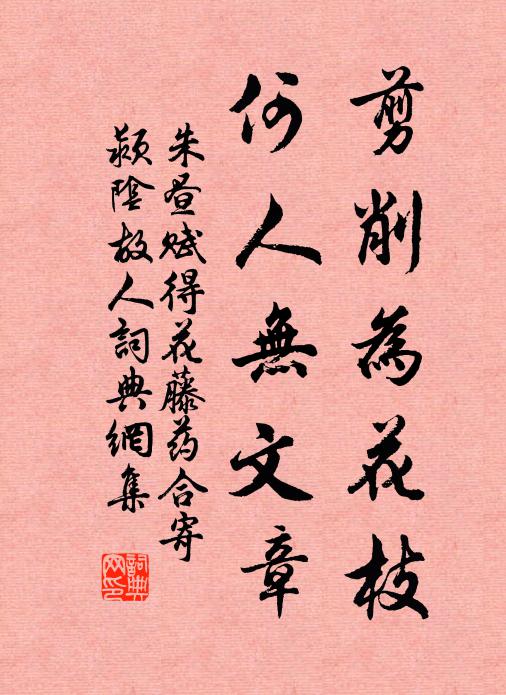 剪削為花枝
何人無文章
朱晝賦得花藤药合寄
颍陰故人詞典網集
詞典
网印